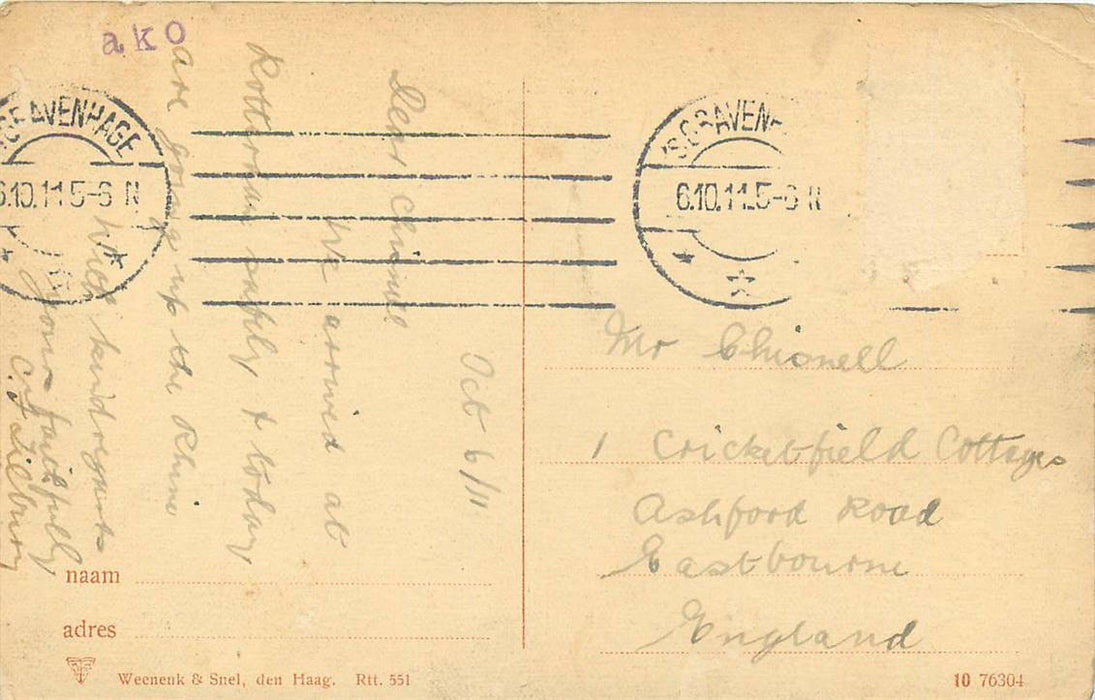 ako
'S GRAVENHAGE
6.10.11.5-6 N
'S GRAVENH
6.10.11.5-6 N
Oct 6/11
Dear Chisnell
We arrived at
Rotterdam safely & today
are going up the Rhine
With kind regards
Yours faithfully
Tilbury
Mr Chisnell
1 Cricketfield Cottages
Ashford Road
Eastbourne
England
naam
adres
Weenenk & Snel, den Haag. Rtt. 551
10 76304